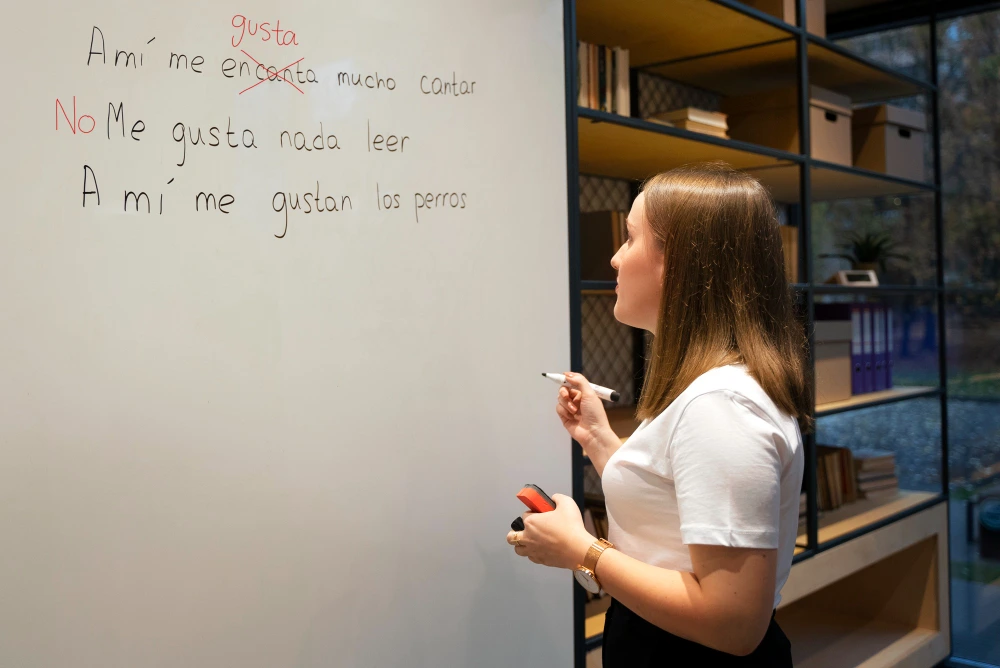 gusta
A mí me encanta mucho cantar
No Me gusta nada leer
A mí me gustan los perros